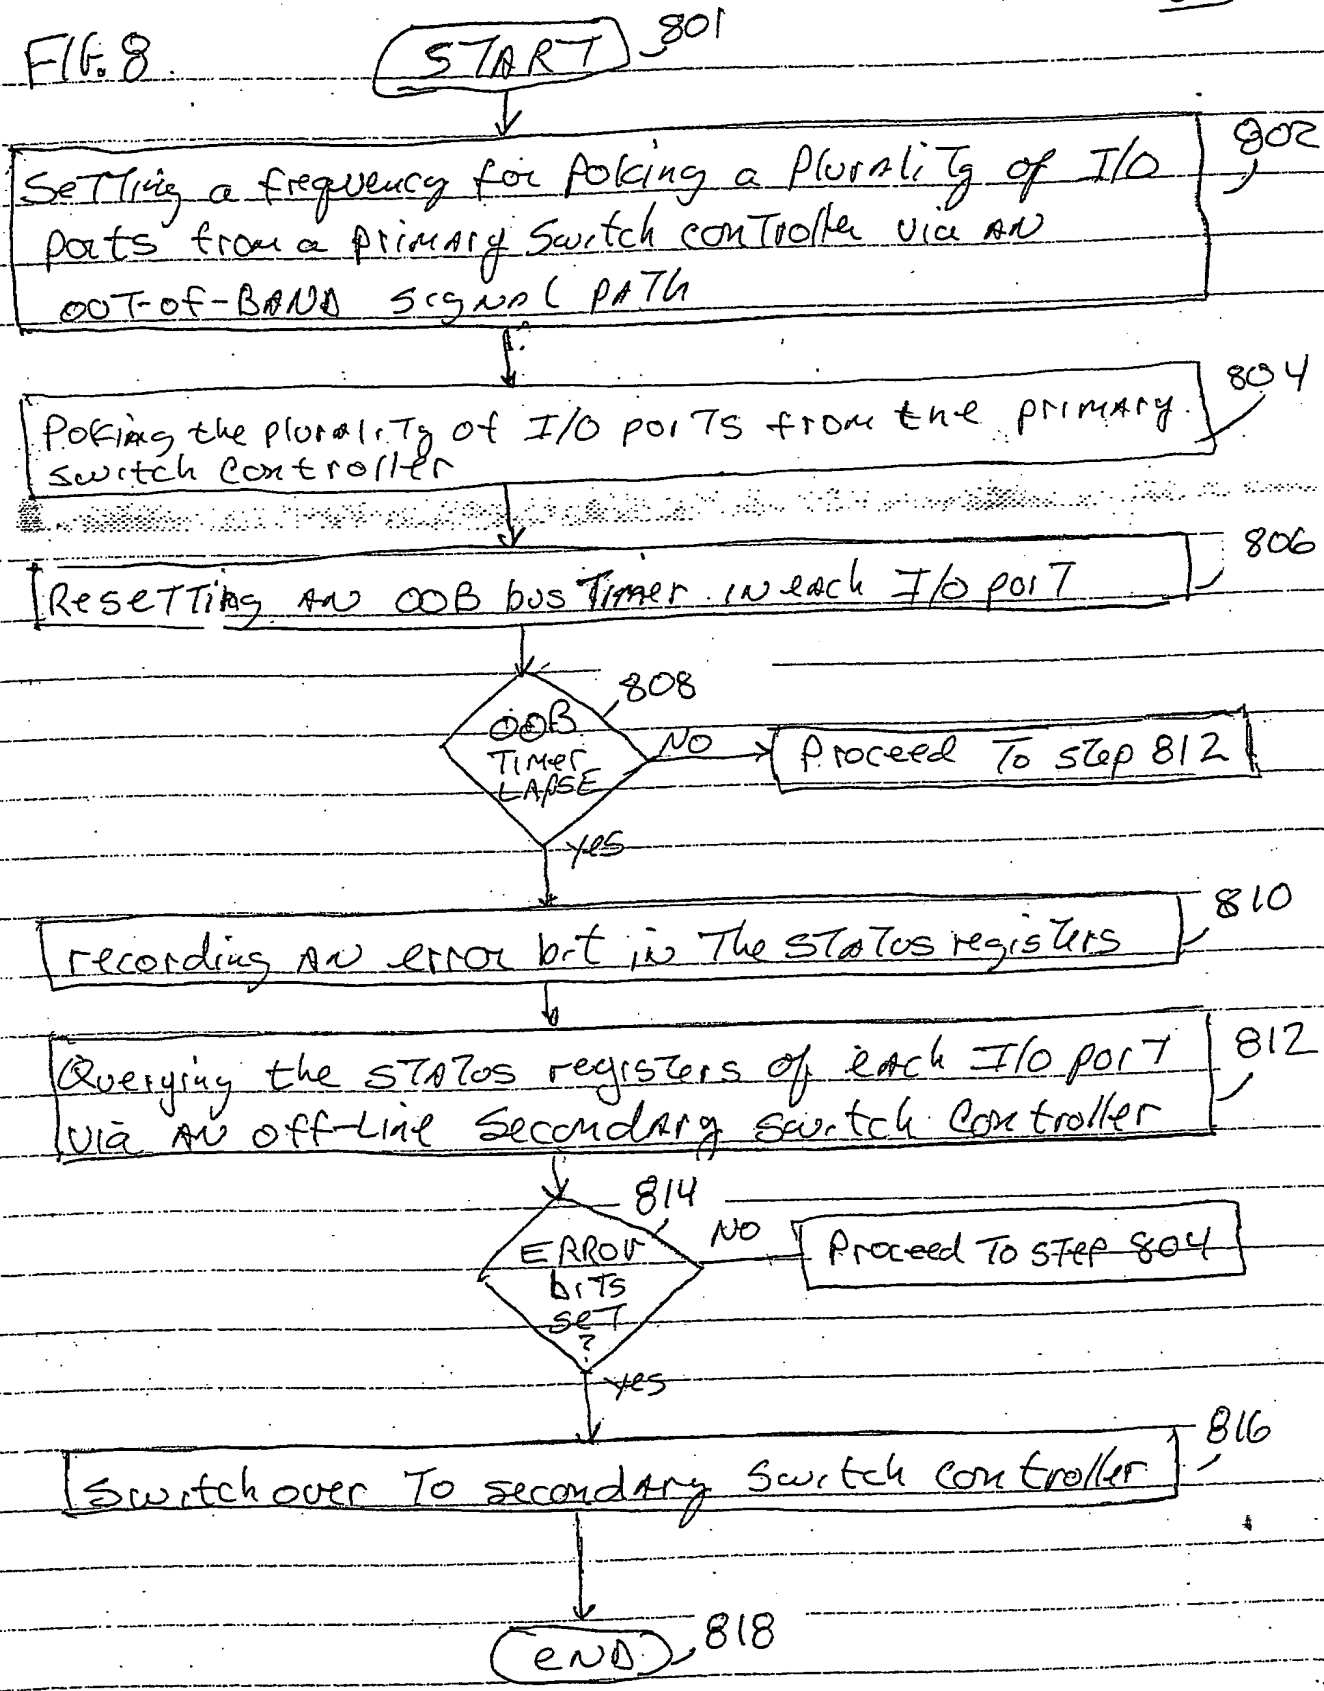 FIG. 8.
START 801
802
Setting a frequency for Poking a Plurality of I/O
ports from a primary Switch controller via AN
OOT-of-BAND signal PATH
804
Poking the plurality of I/O ports from the primary
switch controller
806
Resetting AN OOB bus Timer in each I/O port
808
OOB
Timer
LAPSE
NO
Proceed To step 812
yes
810
recording AN error bit in The status registers
812
Querying the status registers of each I/O port
via AN off-Line Secondary switch Controller
814
ERROR
bits
set
?
NO
Proceed To step 804
yes
816
Switch over To secondary Switch controller
END 818